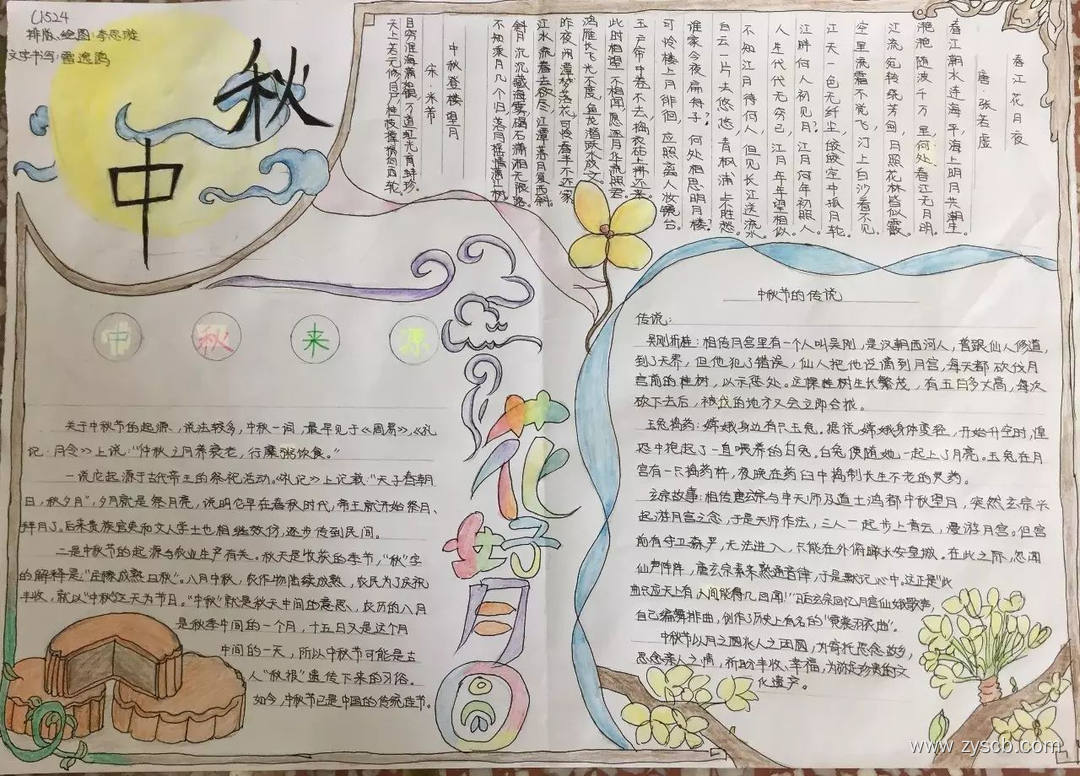 C1524
排版、绘图:李思璇
文字书写:雷逸鸿
中秋
春江花月夜
唐·张若虚
春江潮水连海平,海上明月共潮生。
滟滟随波千万里,何处春江无月明。
江流宛转绕芳甸,月照花林皆似霰。
空里流霜不觉飞,汀上白沙看不见。
江天一色无纤尘,皎皎空中孤月轮。
江畔何人初见月?江月何年初照人?
人生代代无穷已,江月年年望相似。
不知江月待何人,但见长江送流水。
白云一片去悠悠,青枫浦上不胜愁。
谁家今夜扁舟子?何处相思明月楼?
可怜楼上月徘徊,应照离人妆镜台。
玉户帘中卷不去,捣衣砧上拂还来。
此时相望不相闻,愿逐月华流照君。
鸿雁长飞光不度,鱼龙潜跃水成文。
昨夜闲潭梦落花,可怜春半不还家。
江水流春去欲尽,江潭落月复西斜。
斜月沉沉藏海雾,碣石潇湘无限路。
不知乘月几人归,落月摇情满江树。
中秋登楼望月
宋·米芾
目穷淮海满如银,万道虹光育蚌珍。
天上若无修月户,桂枝撑损向西轮。
中秋来源
关于中秋节的起源,说法较多,中秋一词,最早见于《周易》,《礼
记·月令》上说:"仲秋之月养衰老,行糜粥饮食。"
一说它起源于古代帝王的祭祀活动。《礼记》上记载:"天子春朝
日,秋夕月",夕月就是祭月亮,说明它早在春秋时代,帝王就开始祭月、
拜月了。后来贵族官吏和文人学士也相继效仿,逐步传到民间。
二是中秋节的起源与农业生产有关。秋天是收获的季节,"秋"字
的解释是:"庄稼成熟曰秋"。八月中秋,农作物陆续成熟,农民为了庆祝
丰收,就以"中秋"这天为节日。"中秋"就是秋天中间的意思,农历的八月
是秋季中间的一个月,十五日又是这个月
中间的一天,所以中秋节可能是古
人"秋报"遗传下来的习俗。
如今,中秋节已是中国的传统佳节。
花好月圆
中秋节的传说
传说:
吴刚折桂:相传月宫里有一个人叫吴刚,是汉朝西河人,曾跟仙人修道,
到了天界,但他犯了错误,仙人把他谪到月宫,每天都砍伐月
宫前的桂树,以示惩处。这棵桂树生长繁茂,有五百多丈高,每次
砍下去后,被伐的地方又会立即合拢。
玉兔捣药:嫦娥身边有只玉兔。据说嫦娥身体变轻,开始升空时,惶
恐中抱起了一直喂养的白兔,白兔便随她一起上了月亮。玉兔在月
宫有一只捣药杵,夜晚在药臼中捣制长生不老的灵药。
玄宗故事:相传唐玄宗与申天师及道士鸿都中秋望月,突然玄宗兴
起游月宫之念,于是天师作法,三人一起步上青云,漫游月宫。但宫
前有守卫森严,无法进入,只能在外俯瞰长安皇城。在此之际,忽闻
仙声阵阵,唐玄宗素来熟通音律,于是默记心中。这正是"此
曲只应天上有,人间能得几回闻!"日后玄宗回忆月宫仙娥歌声,
自己编舞排曲,创作了历史上有名的"霓裳羽衣曲"。
中秋节以月之圆兆人之团圆,为寄托思念故乡,
思念亲人之情,祈盼丰收、幸福,为弥足珍贵的文
化遗产。
www.zyscb.com